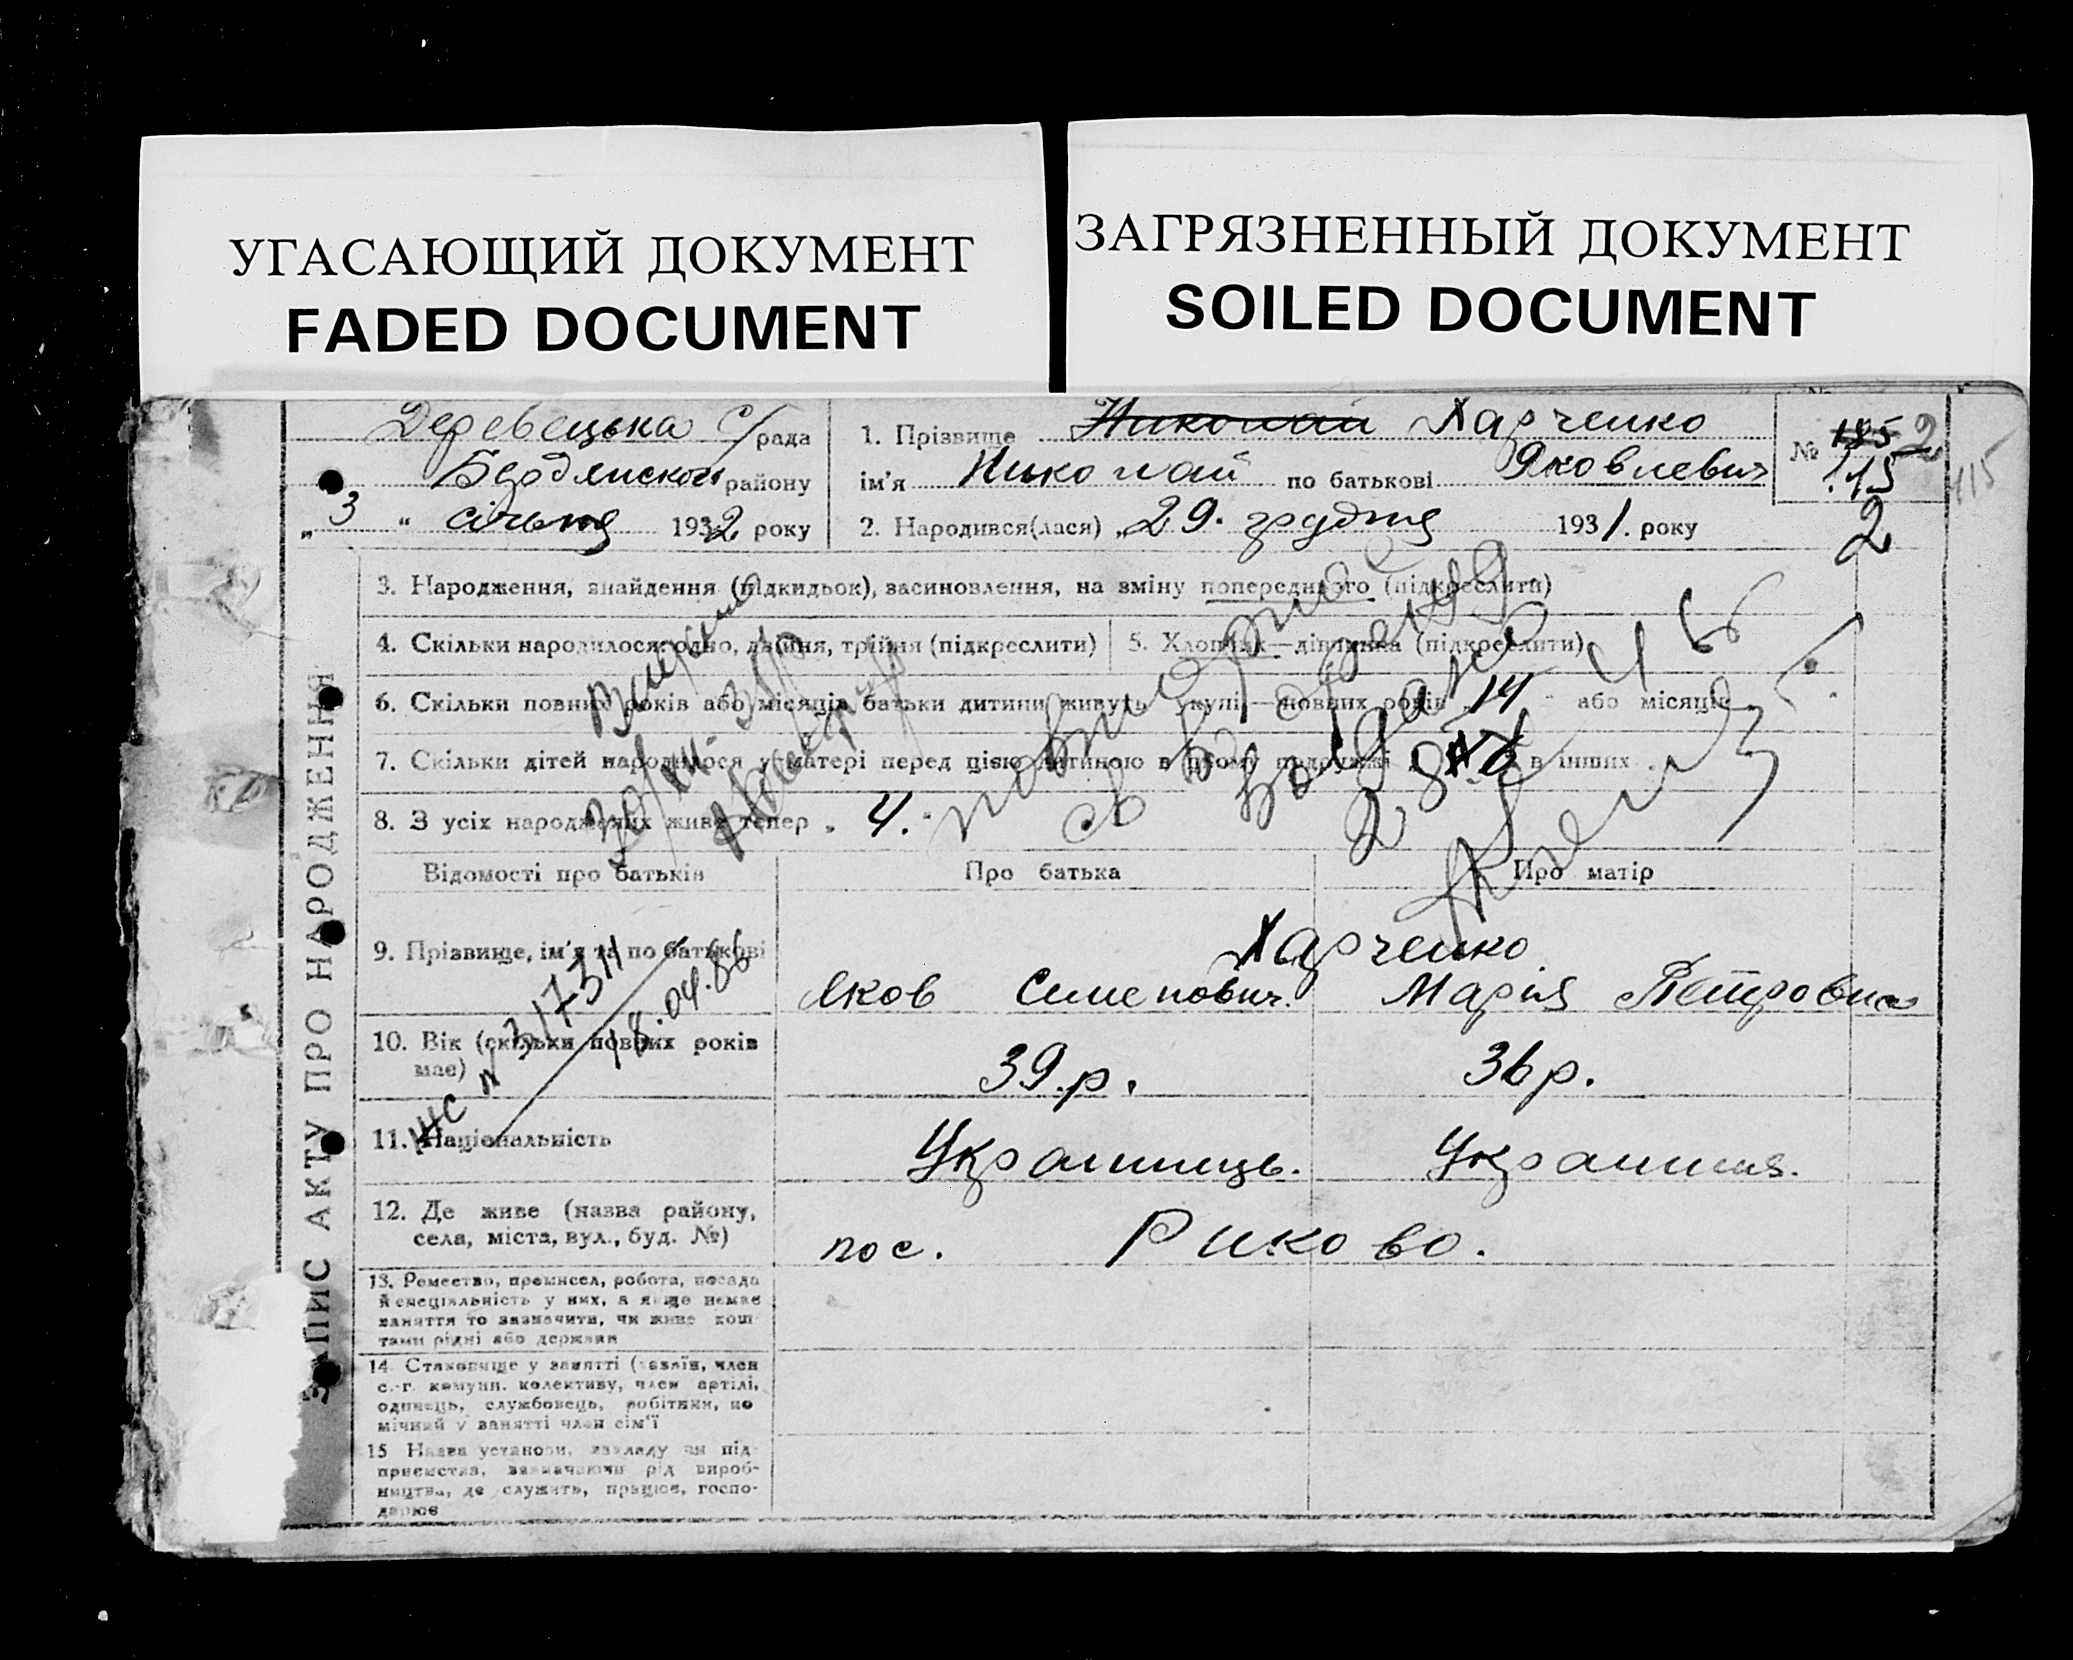 УГАСАЮЩИЙ ДОКУМЕНТ
FADED DOCUMENT
ЗАГРЯЗНЕННЫЙ ДОКУМЕНТ
SOILED DOCUMENT
рада
району
„ 3 “ січня 1932 року
1. Прізвище Николай Харченко
ім'я Николай по батькові Яковлевич
2. Народився(лася) „29. грудня 1931. року
№ 185 2
115
2
415
ЗАПИС АКТУ ПРО НАРОДЖЕННЯ
3. Народження, знайдення (підкидьок), засиновлення, на зміну попереднього (підкреслити)
4. Скільки народилося: одно, двійня, трійня (підкреслити)
5. Хлопчик—дівчинка (підкреслити)
6. Скільки повних років або місяців батьки дитини живуть укупі—повних років „ 14 або місяців
7. Скільки дітей народилося у матері перед цією дитиною в цьому подружжі в інших
8. З усіх народжених живе тепер „ 4.
повторное
св во
28
Відомості про батьків
Про батька
Про матір
9. Прізвище, ім'я та по батькові
Харченко
Яков Семенович.
Марія Петровна
№ 317311
18.04.86
10. Вік (скільки повних років має)
39.р.
36р.
11. Національність
Украинець.
Украинка.
12. Де живе (назва району,
села, міста, вул., буд. №)
пос. Риково.
13. Ремество, промисел, робота, посада
й спеціальність у них, а якще немає
заняття то зазначити, чи живе кош
тами рідні або держави
14 Становище у занятті (хазяїн, член
с.-г. комуни. колективу, член артілі,
одинець, службовець, робітник, по
мічний у занятті член сім'ї
15 Назва установи, закладу чи під-
приємства, зазначаючи рід вироб-
ництва, де служить, працює, госпо-
дарює